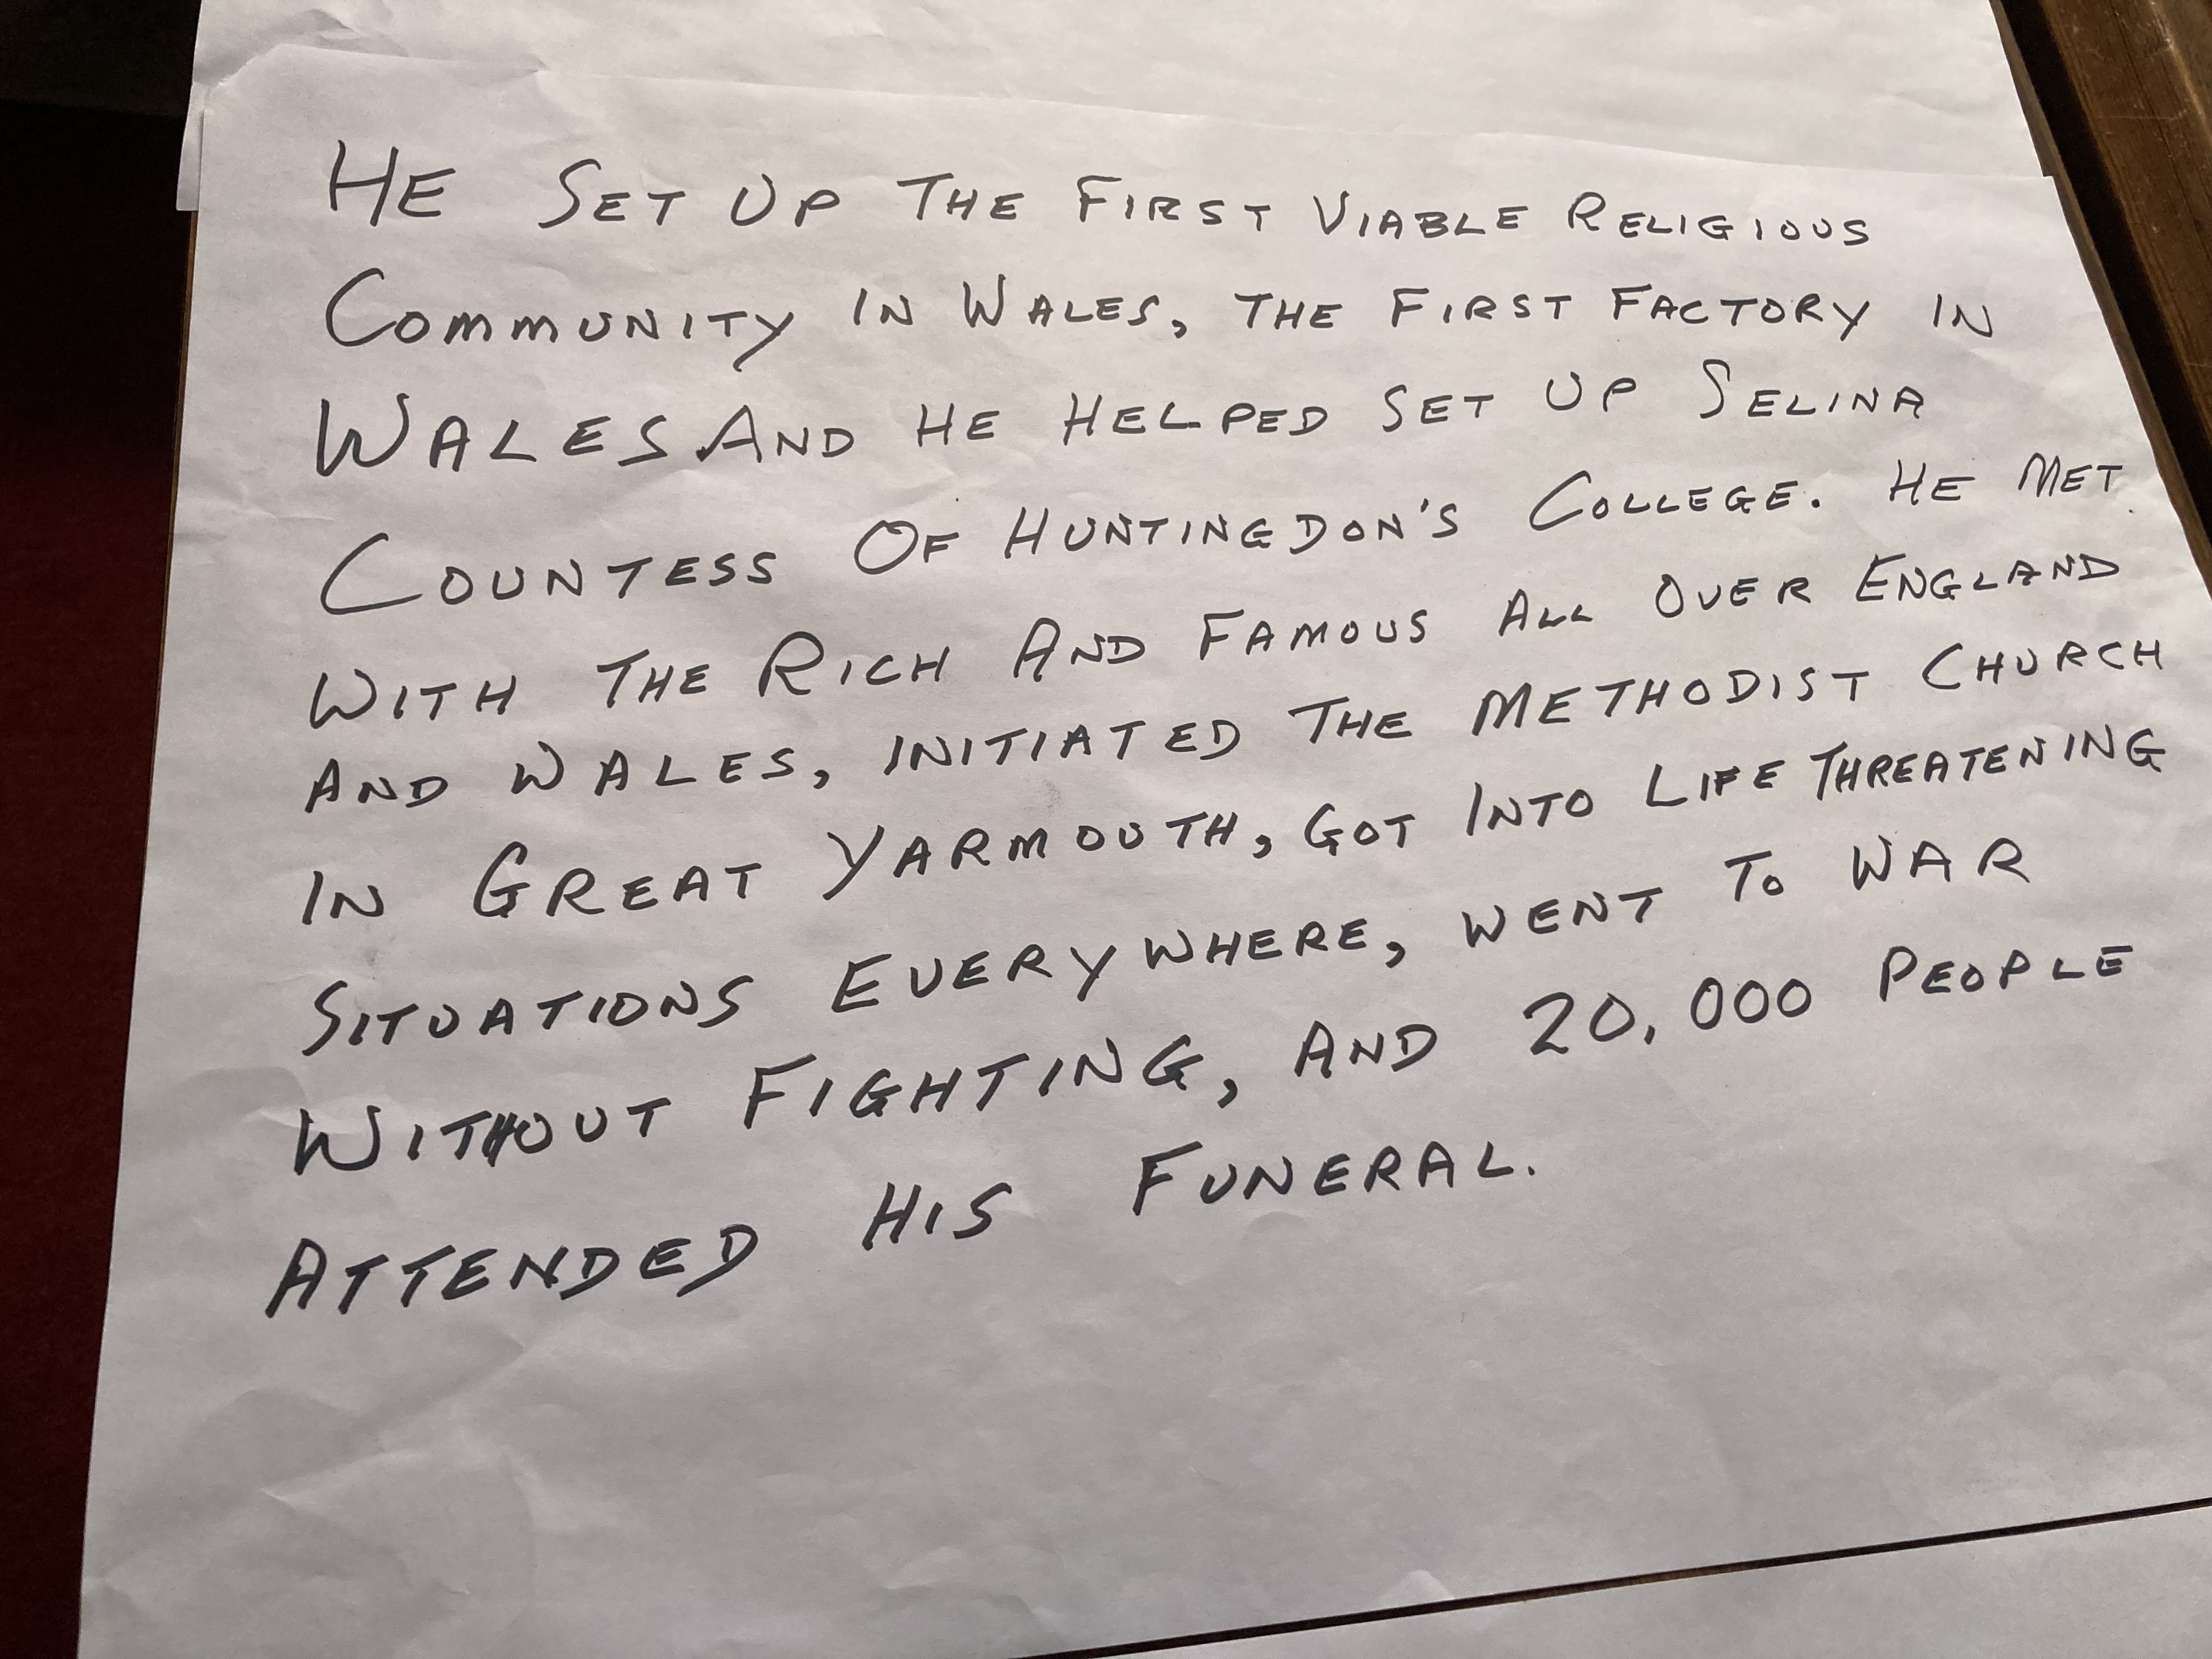 HE SET UP THE FIRST VIABLE RELIGIOUS
COMMUNITY IN WALES, THE FIRST FACTORY IN
WALES AND HE HELPED SET UP SELINA
COUNTESS OF HUNTINGDON'S COLLEGE. HE MET
WITH THE RICH AND FAMOUS ALL OVER ENGLAND
AND WALES, INITIATED THE METHODIST CHURCH
IN GREAT YARMOUTH, GOT INTO LIFE THREATENING
SITUATIONS EVERYWHERE, WENT TO WAR
WITHOUT FIGHTING, AND 20,000 PEOPLE
ATTENDED HIS FUNERAL.